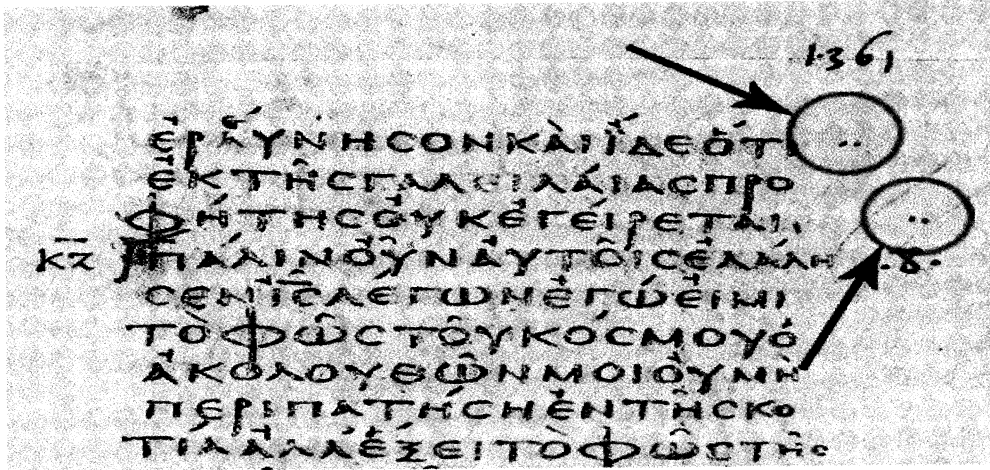 1361
ἘΡΑΎΝΗϹΟΝΚΑῚΪ́ΔΕὍΤΙ ..
ἘΚΤΗ͂ϹΓΑΛΕΙΛΆΙΑϹΠΡΟ
ΦΉΤΗϹΟὐΚἘΓΕΊΡΕΤΑΙ· ..
Κ̅Ζ̅ ΠΆΛΙΝΟΥ̓͂ΝἈΥΤΟΙ͂ϹἘΛΆΛΗ
ϹΕΝΙ̅Ϲ̅ΛΈΓΩΝἘΓΏἘΙΜΙ
ΤῸΦΩ͂ϹΤΟΥ͂ΚΌϹΜΟΥὉ
ἈΚΟΛΟΥΘΩ͂ΝΜΟΙΟὐΜῊ
ΠΕΡΙΠΑΤΉϹΗἘΝΤΗ͂ϹΚΟ
ΤΊΑἈΛΛΈΞΕΙΤῸΦΩ͂ϹΤΗ͂Ϲ